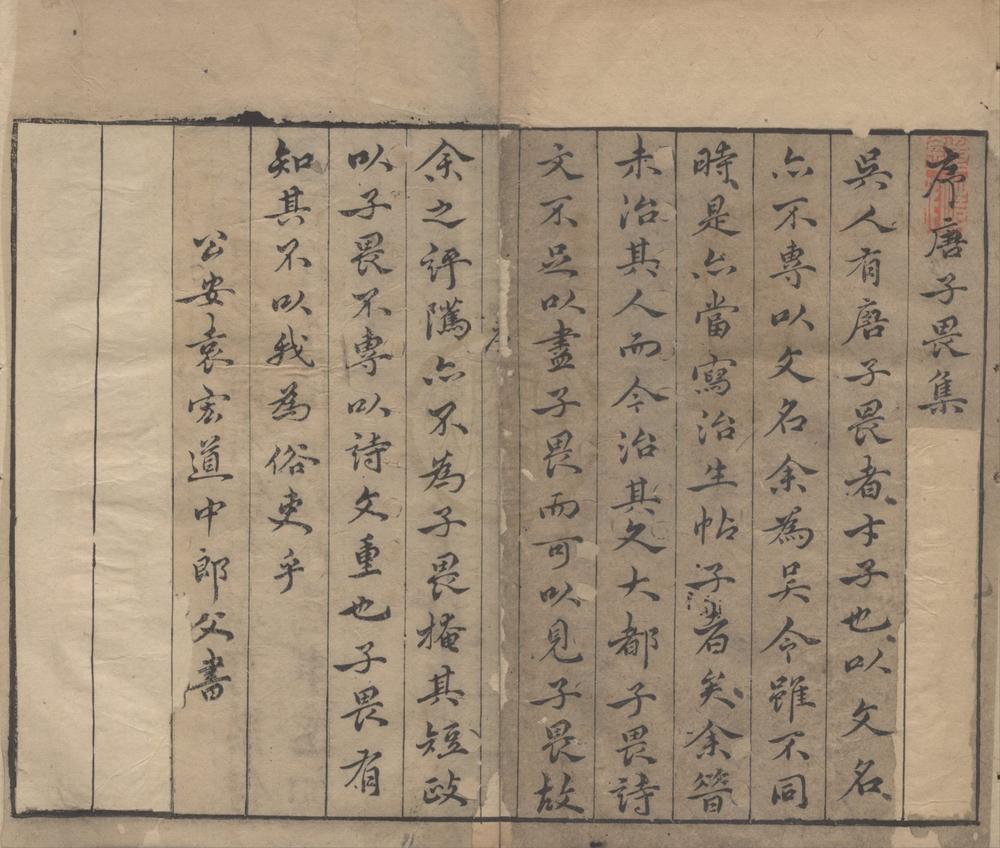 序唐子畏集
吳人有唐子畏者才子也以文名
亦不專以文名余為吳令雖不同
時是亦當寫治生帖子者矣余昔
未治其人而今治其文大都子畏詩
文不足以盡子畏而可以見子畏故
序
余之評隲亦不為子畏掩其短政
以子畏不專以詩文重也子畏有
知其不以我為俗吏乎
公安袁宏道中郎父書